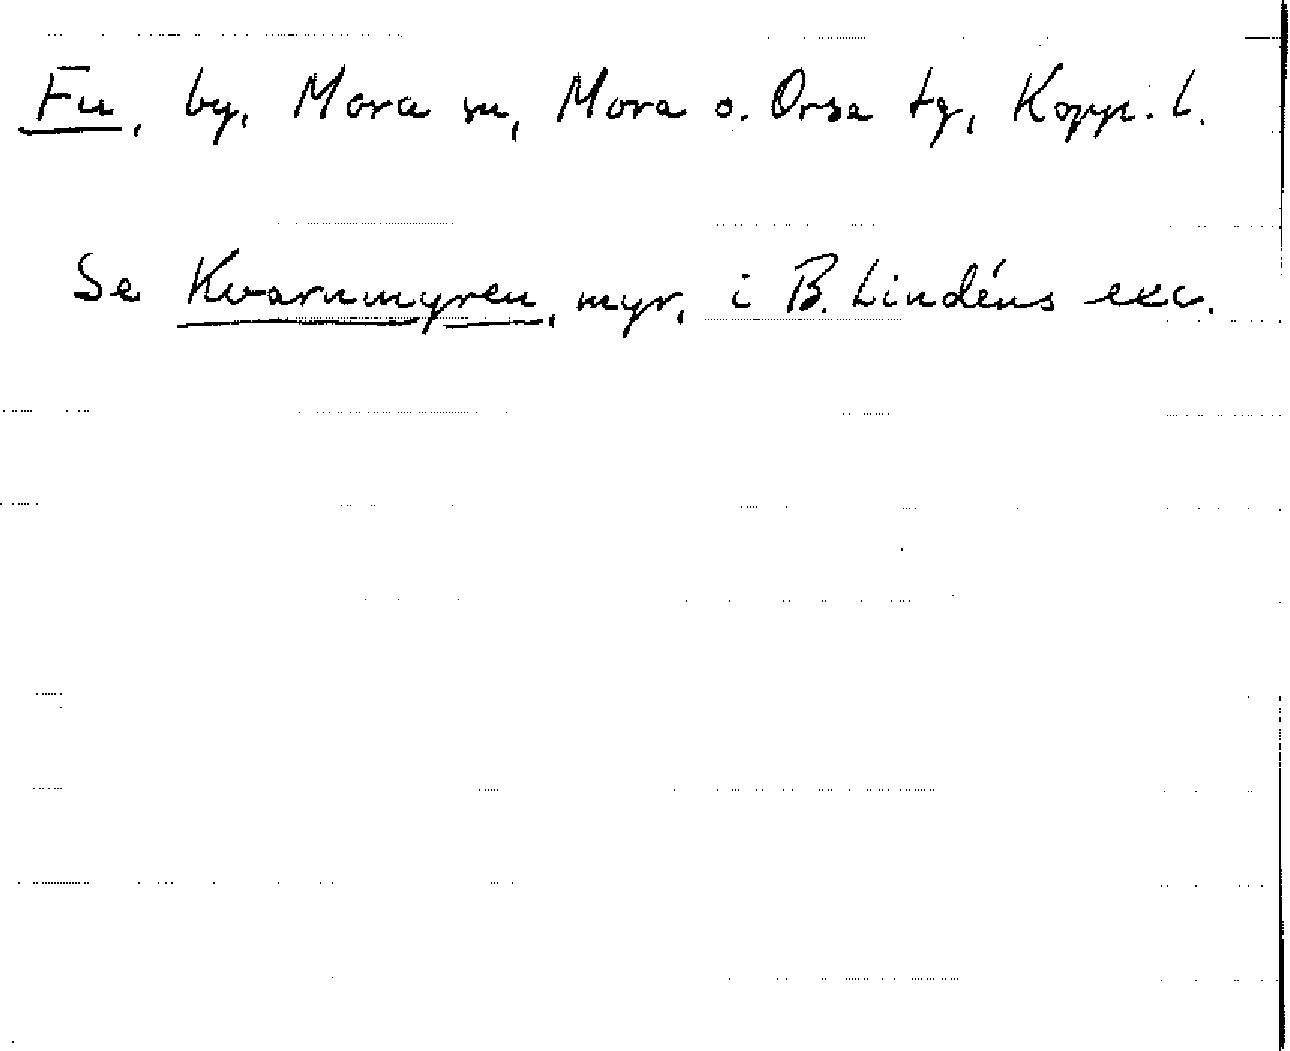 Fu, by, Mora sn, Mora o. Orsa tg, Kopp. l.
Se Kvarnmyren, myr, i B. Lindéns exc.